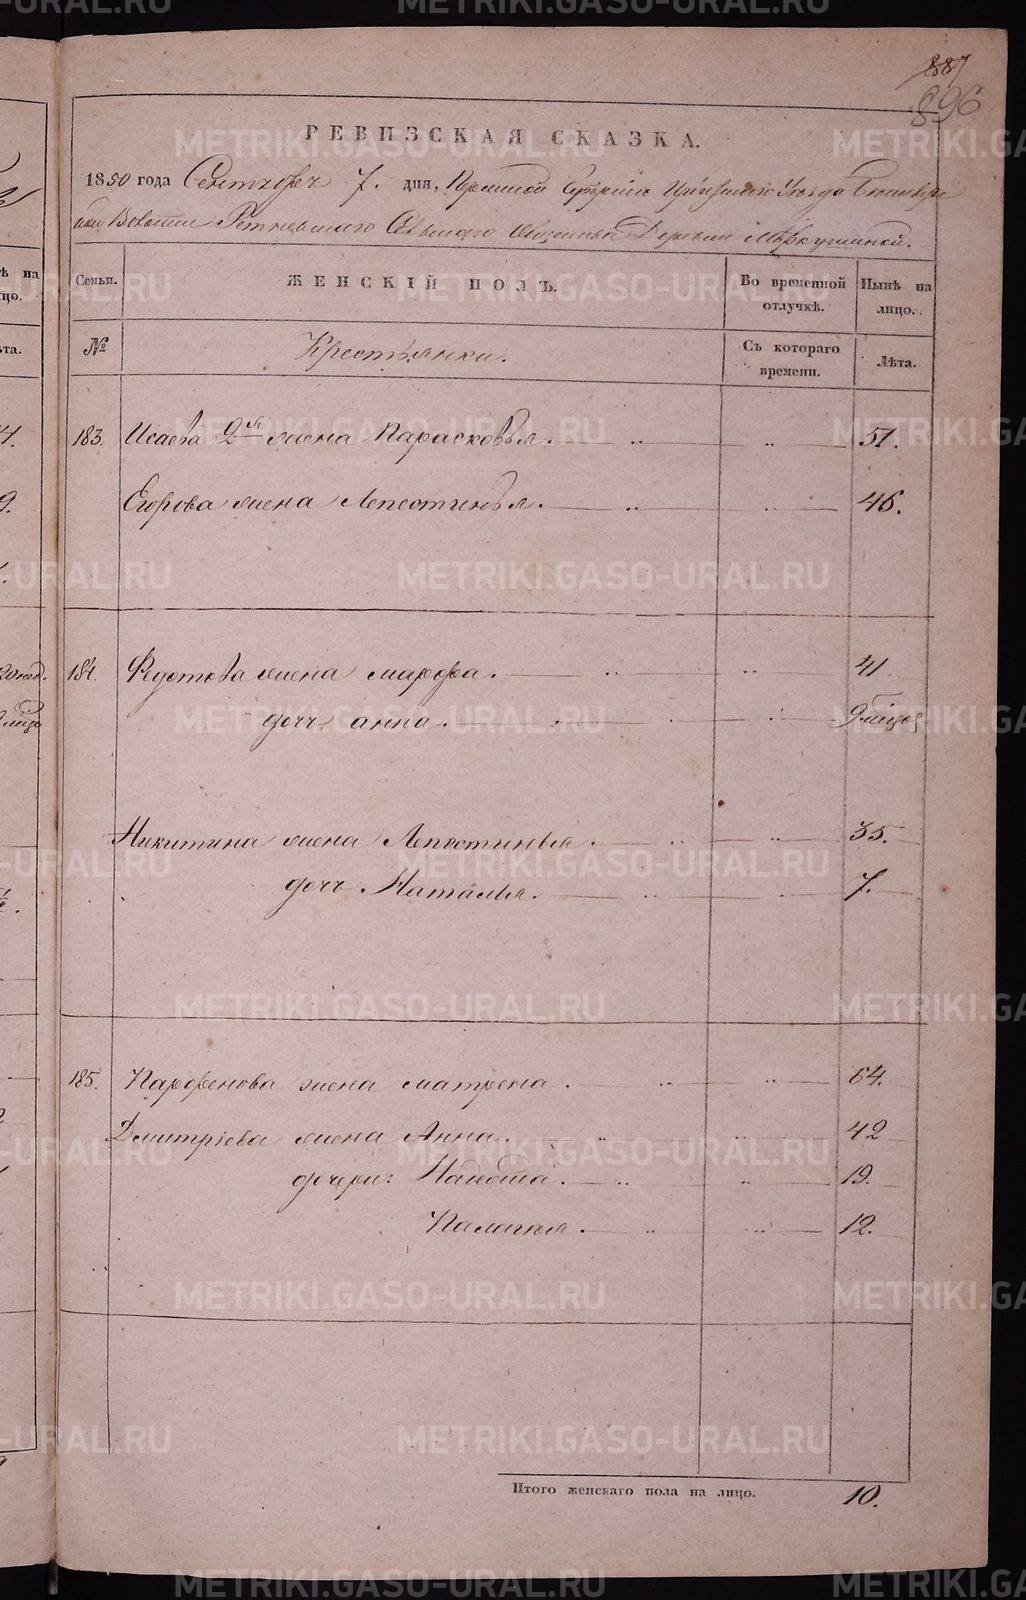 887
896
РЕВИЗСКАЯ СКАЗКА.
1850 года Сентября 7. дня, Пермской Губерніи Ирбитскаго Уезда
Волости Сельскаго Общества Деревни Меркушиной.
Семьи. ЖЕНСКІЙ ПОЛЪ. Во временной отлучкѣ. Нынѣ на лицо.
№ Крестьянки. Съ котораго времени. Лѣта.
183. Исаева 2я жена Парасковья. 51.
Егорова жена Лепестинья. 46.
184. Федотова жена Марфа. 41
дочь Анна. 9 мѣсяц
Никитина жена Лепестинья 35.
дочь Наталья. 7.
185. Парфенова жена Матрена. 64.
Дмитріева жена Анна. 42
дочери: 19.
Палагея. 12.
Итого женскаго пола на лицо. 10.
METRIKI.GASO-URAL.RU